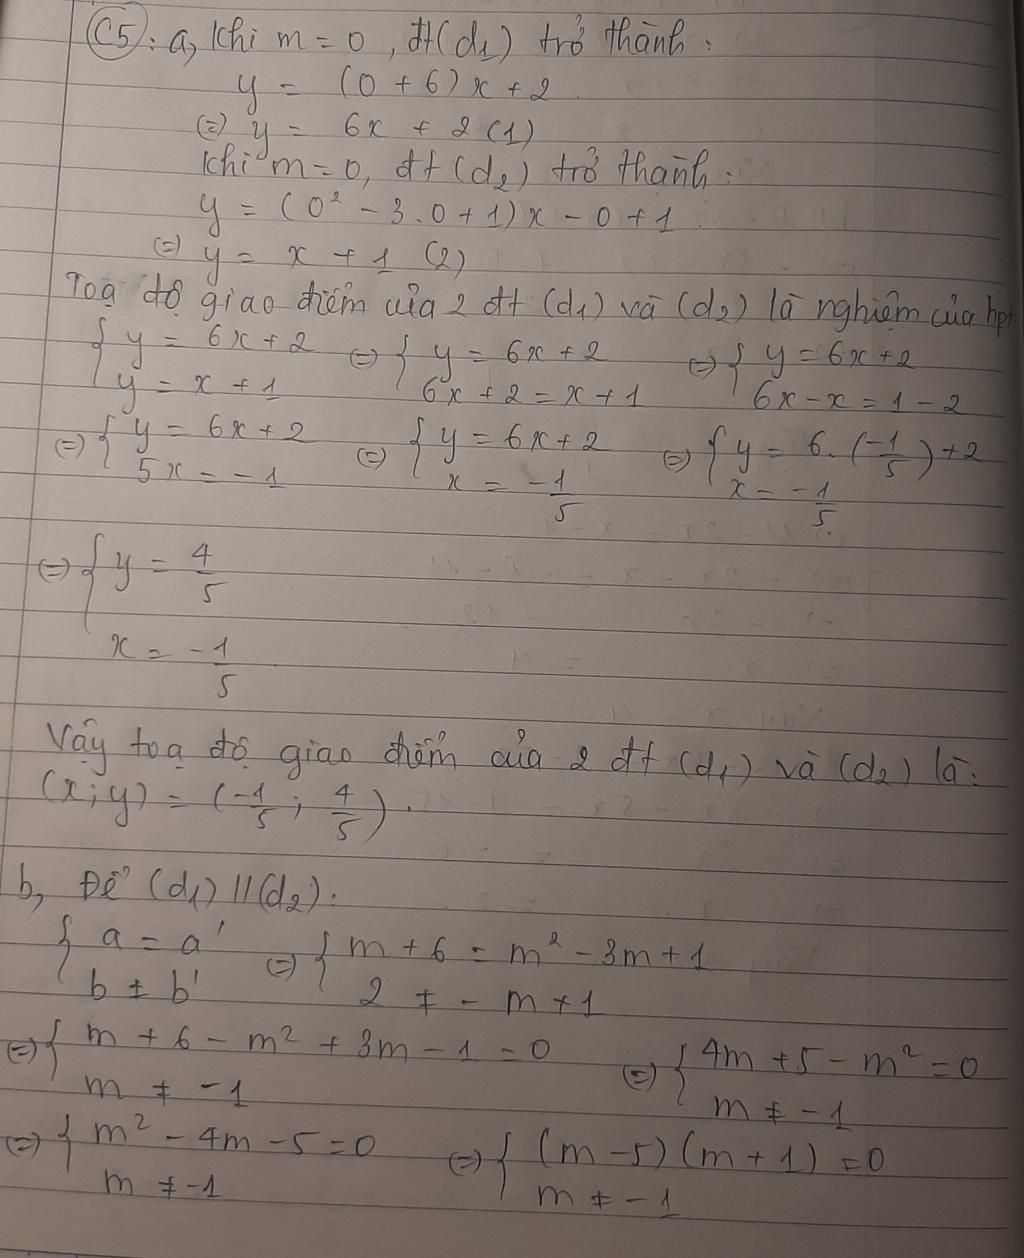 C5: a, Khi m = 0, đt (d1) trở thành:
y = (0 + 6)x + 2
(=) y = 6x + 2 (1)
Khi m = 0, đt (d2) trở thành:
y = (0² - 3.0 + 1)x - 0 + 1
(=) y = x + 1 (2)
Toạ độ giao điểm của 2 đt (d1) và (d2) là nghiệm của hpt
{ y = 6x + 2 (=) { y = 6x + 2 (=) { y = 6x + 2
y = x + 1 6x + 2 = x + 1 6x - x = 1 - 2
(=) { y = 6x + 2 (=) { y = 6x + 2 (=) { y = 6. (-1/5) + 2
5x = -1 x = -1/5 x = -1/5
(=) { y = 4/5
x = -1/5
Vậy toạ độ giao điểm của 2 đt (d1) và (d2) là:
(x; y) = (-1/5; 4/5).
b, Để (d1) // (d2).
{ a = a' (=) { m + 6 = m² - 3m + 1
b ≠ b' 2 ≠ - m + 1
(=) { m + 6 - m² + 3m - 1 = 0 (=) { 4m + 5 - m² = 0
m ≠ -1 m ≠ -1
(=) { m² - 4m - 5 = 0 (=) { (m - 5)(m + 1) = 0
m ≠ -1 m ≠ -1